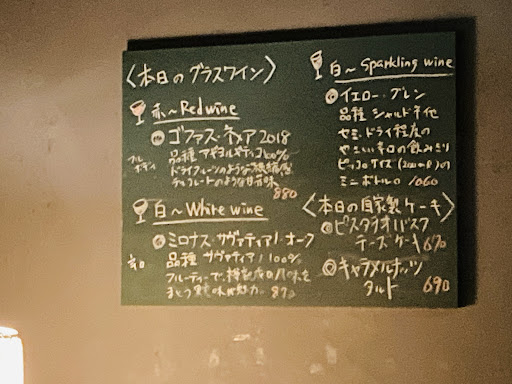 〈本日のグラスワイン〉
赤〜Red wine
ゴファス・ネメア2018
フルボディ
品種 アギヨルギティコ100%
ドライフルーツのような凝縮感
チョコレートのような甘苦味
880
白〜White wine
ミロナス・サヴァティアノ・オーク
辛口
品種 サヴァティアノ100%
フルーティーで、樽熟成の
まとう 魅力。870
白〜Sparkling wine
イエロー・グレン
品種 シャルドネ他
セミ・ドライ程度の
やさしい辛口の飲み
ピッコロサイズ(200ml)の
ミニボトル 1060
〈本日の自家製ケーキ〉
ピスタチオバスク
チーズケーキ 670
キャラメルナッツ
タルト 690